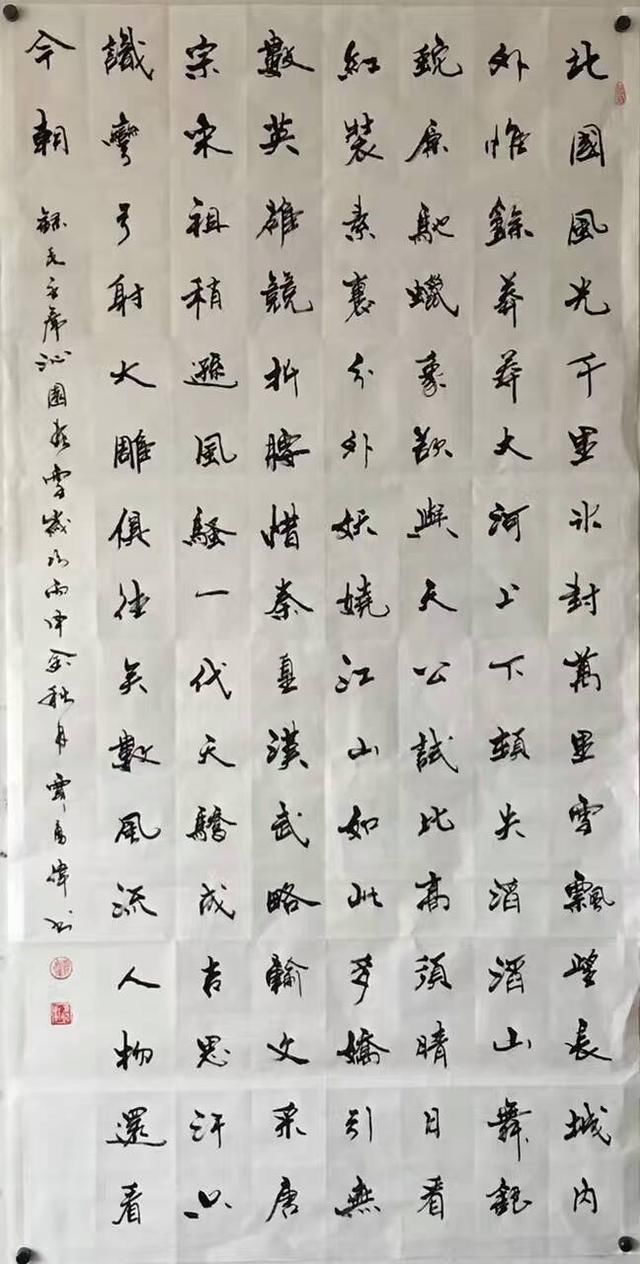 北國風光千里冰封萬里雪飄望長城內
外惟餘莽莽大河上下頓失滔滔山舞銀
蛇原馳蠟象欲與天公試比高須晴日看
紅裝素裹分外妖嬈江山如此多嬌引無
數英雄競折腰惜秦皇漢武略輸文采唐
宗宋祖稍遜風騷一代天驕成吉思汗只
識彎弓射大雕俱往矣數風流人物還看
今朝
錄毛主席沁園春雪歲次丙申金秋月偉書